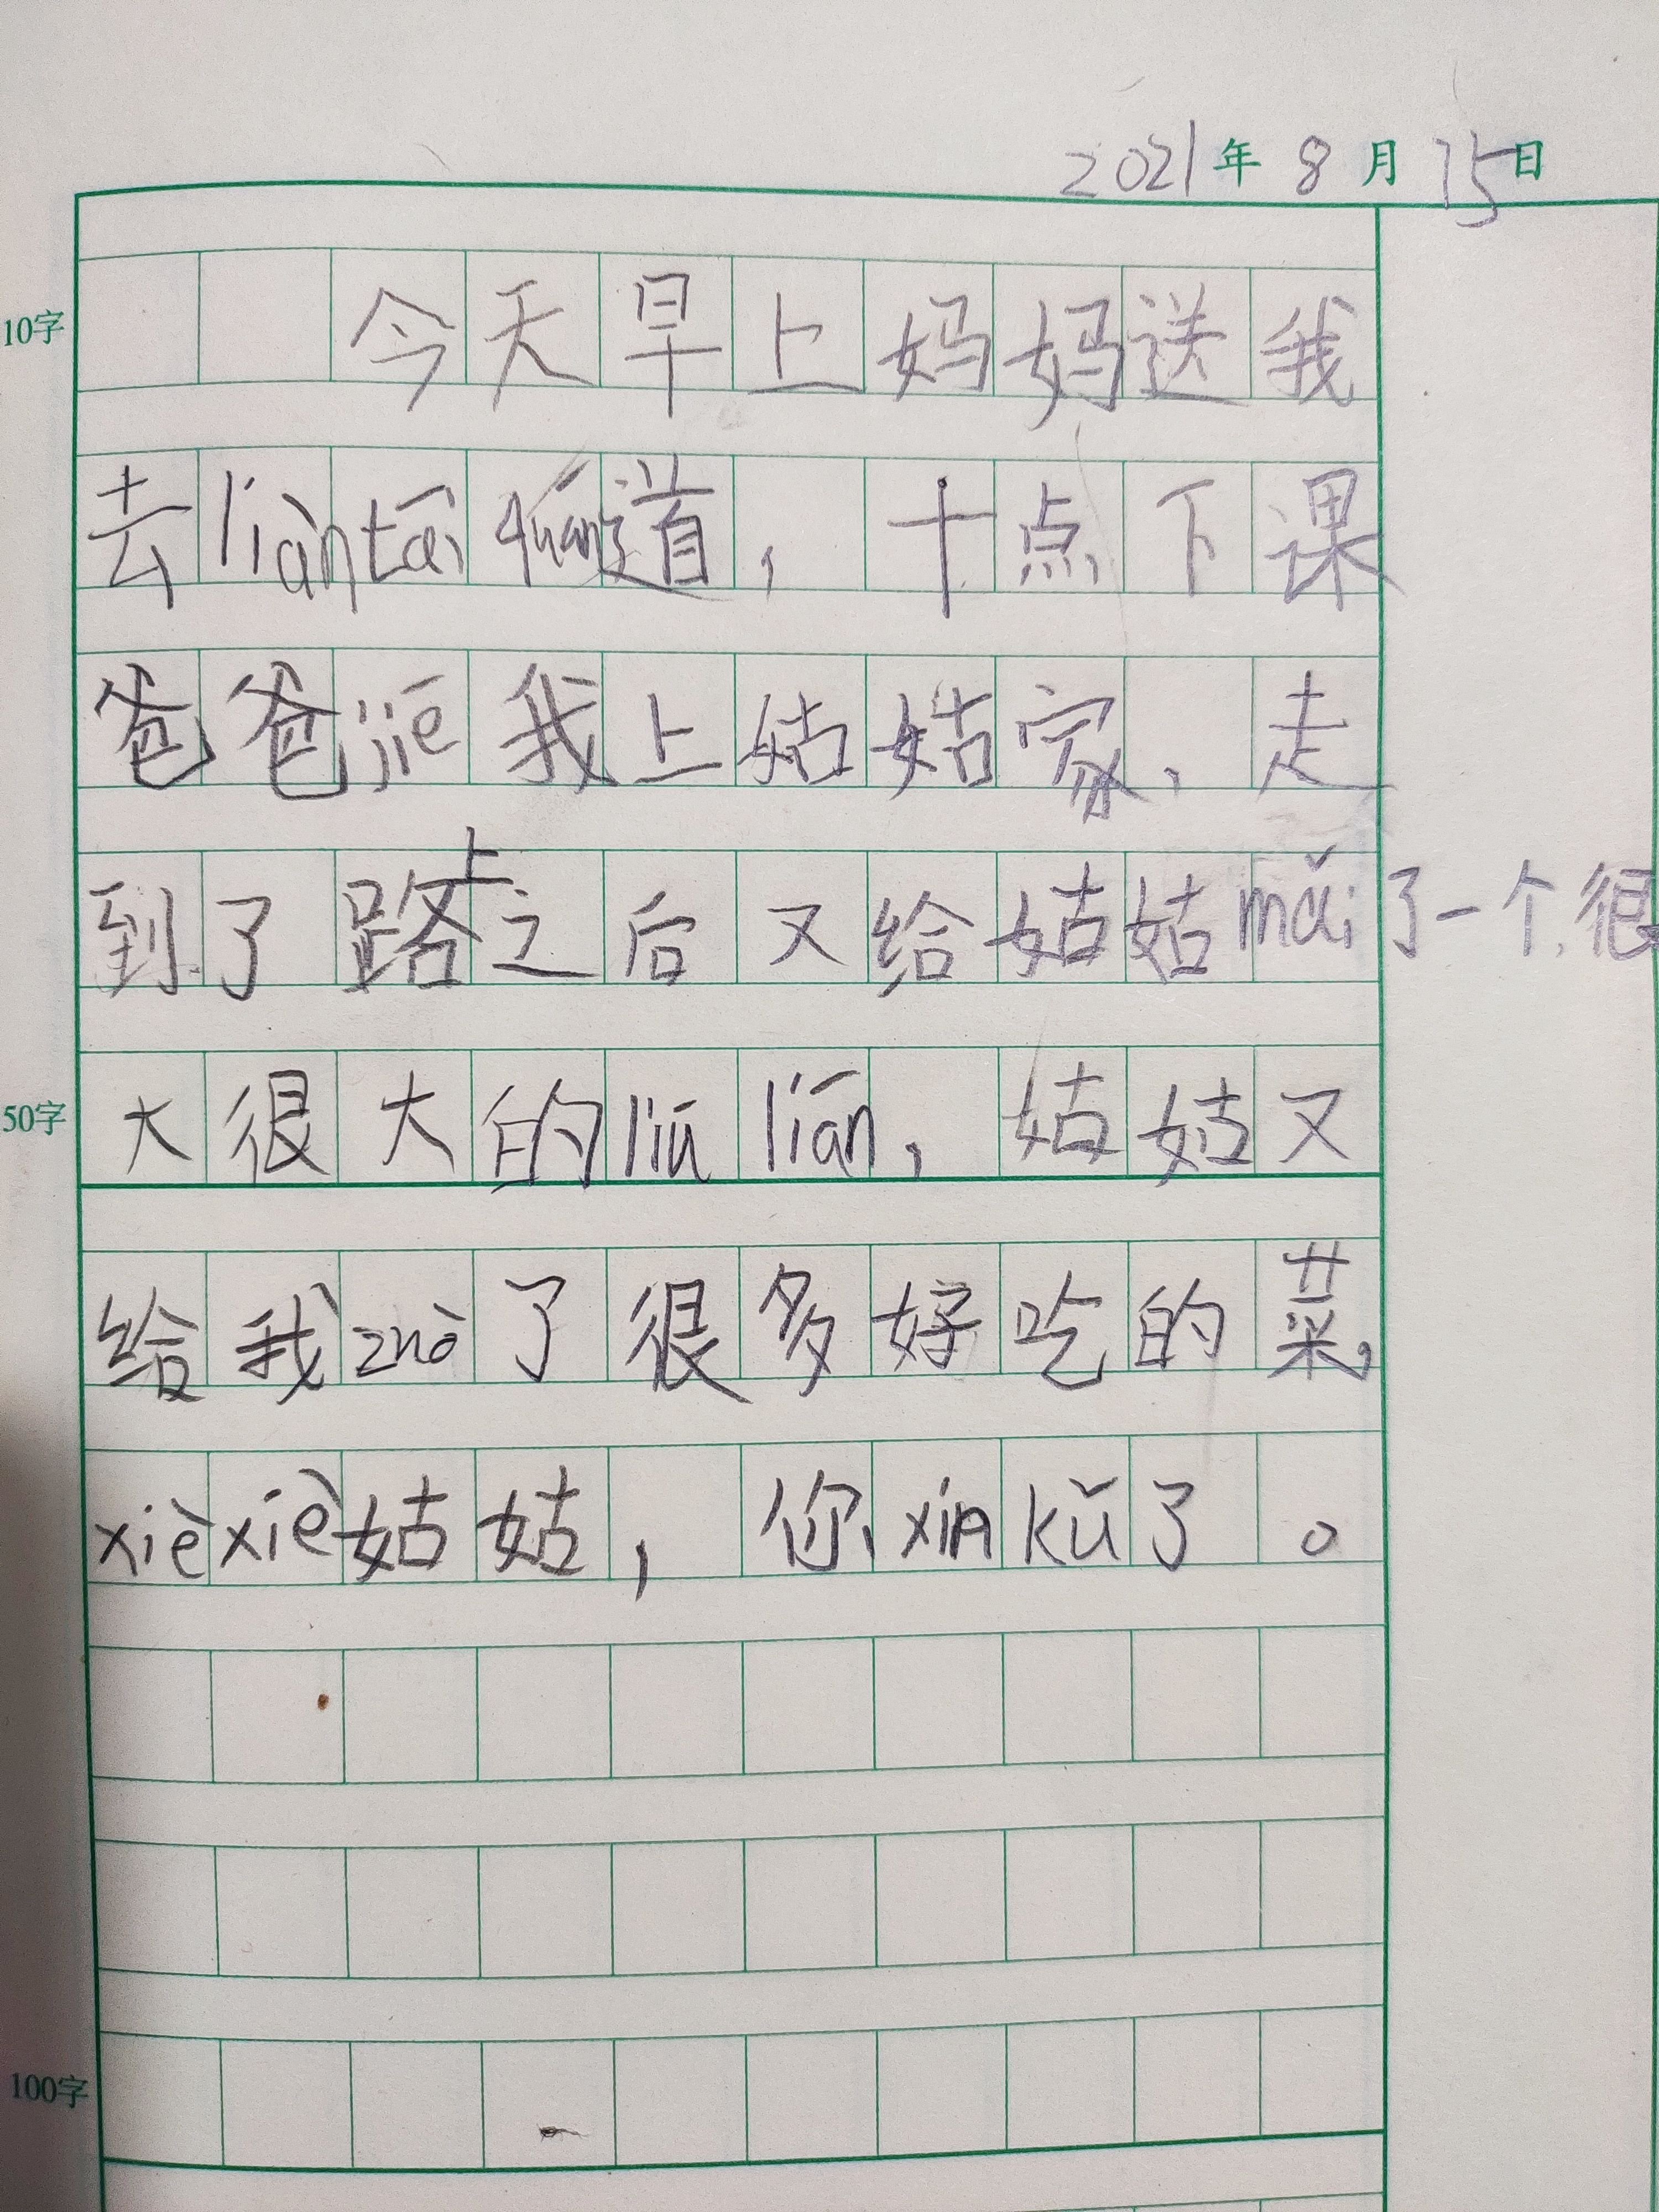 2021年8月15日
10字
今天早上妈妈送我
去liàntái quán道，十点下课
爸爸jiē我上姑姑家，走
到了路上之后又给姑姑mǎi了一个很
50字
大很大的liū lián，姑姑又
给我zuò了很多好吃的菜，
xièxiè姑姑，您xīn kǔ了。
100字